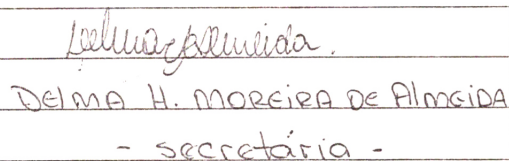 Delma Almeida.
DELMA H. MOREIRA DE AlmEIDA
- secretária -